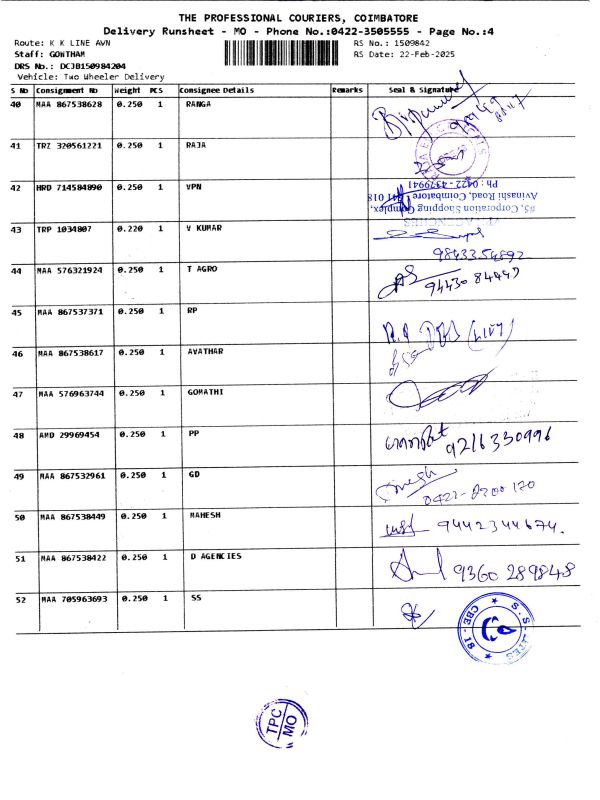 THE PROFESSIONAL COURIERS, COIMBATORE
Delivery Runsheet - MO - Phone No.:0422-3505555 - Page No.:4
Route: K K LINE AVN RS No.: 1509842
Staff: GOWTHAM RS Date: 22-Feb-2025
DRS No.: DCJB150984204
Vehicle: Two Wheeler Delivery
S No Consignment No Weight PCS Consignee Details Remarks Seal & Signature
40 MAA 867538628 0.250 1 RANGA
41 TRZ 320561221 0.250 1 RAJA
42 HRD 714584890 0.250 1 VPN
Ph : 0422 - 4379941
Avinashi Road, Coimbatore
#5, Corporation Shopping Complex,
43 TRP 1034807 0.220 1 V KUMAR
9843354892
44 MAA 576321924 0.250 1 T AGRO
45 MAA 867537371 0.250 1 RP
46 MAA 867538617 0.250 1 AVATHAR
47 MAA 576963744 0.250 1 GOMATHI
48 AMD 29969454 0.250 1 PP 9216330996
49 MAA 867532961 0.250 1 GD
50 MAA 867538449 0.250 1 MAHESH 9442344674.
51 MAA 867538422 0.250 1 D AGENCIES 9360 289848
52 MAA 705963693 0.250 1 SS
CBE-18
TPC
MO